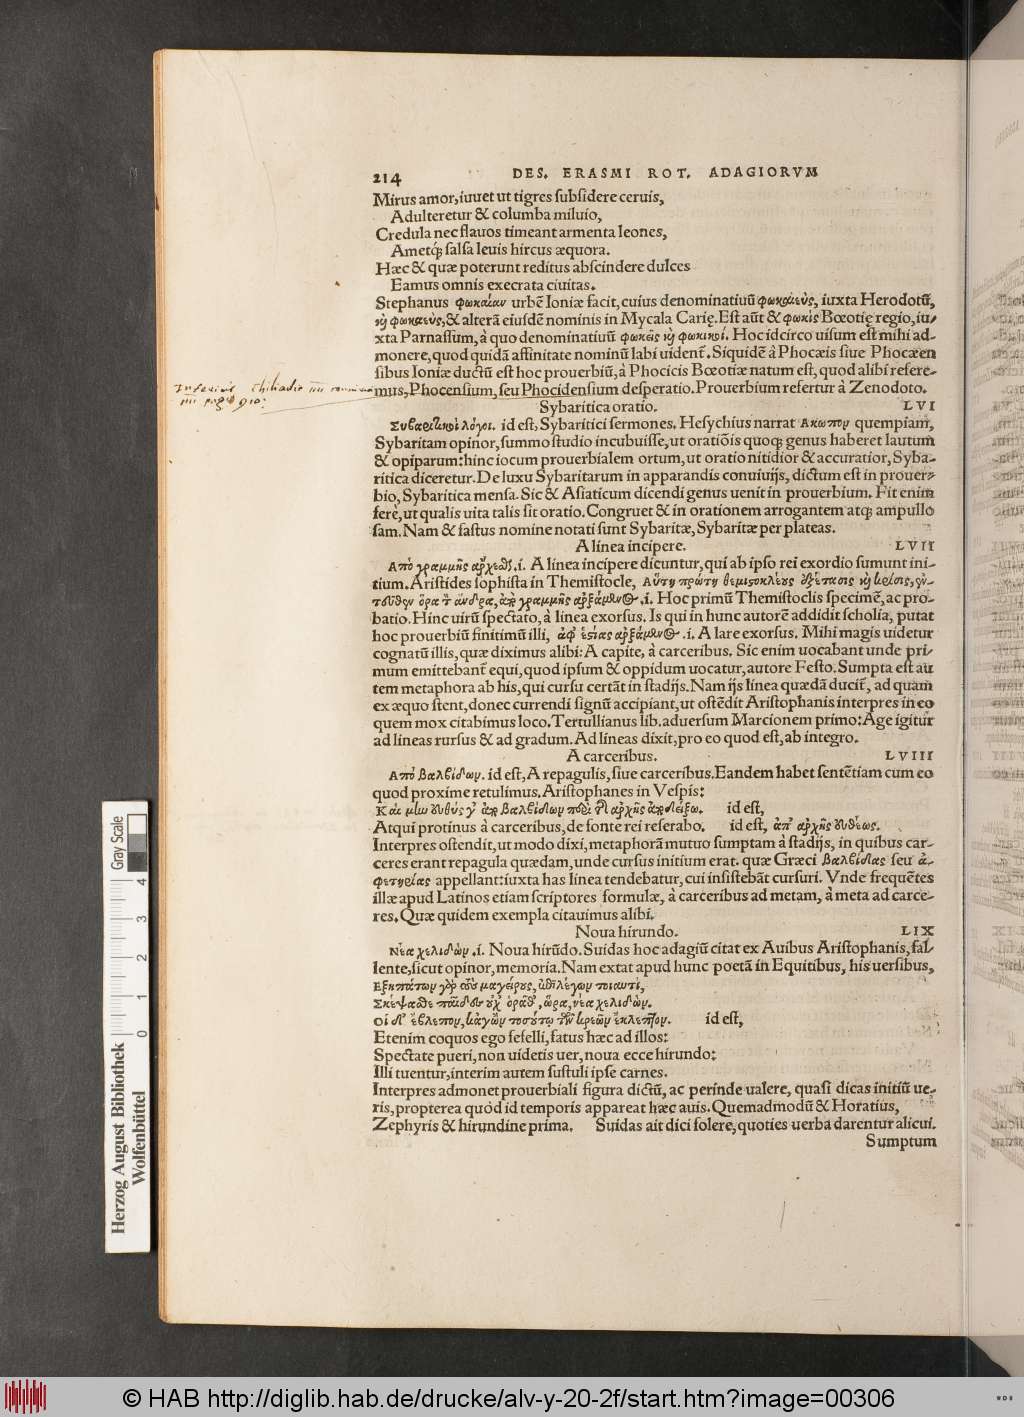 214 DES. ERASMI ROT. ADAGIORVM
Mirus amor, iuuet ut tigres subsidere ceruis,
Adulteretur & columba miluio,
Credula nec flauos timeant armenta leones,
Ametq́; salsa leuis hircus æquora.
Hæc & quæ poterunt reditus abscindere dulces
Eamus omnis execrata ciuitas.
Stephanus φωκαίαν urbē Ioniæ facit, cuius denominatiuū φωκαεὺς, iuxta Herodotū,
καὶ φωκαιεὺς, & alterā eiusdē nominis in Mycala Carię. Est aūt & φωκὶς Bœotię regio, iu-
xta Parnassum, à quo denominatiuū φωκεῖς καὶ φωκικοί. Hoc idcirco uisum est mihi ad-
monere, quod quidā affinitate nominū labi uident̄. Siquidē à Phocæis siue Phocæen
sibus Ioniæ ductū est hoc prouerbiū, à Phocicis Bœotiæ natum est, quod alibi refere-
Inferius Chiliadis IIII
IIII pag. 910:
mus, Phocensium, seu Phocidensium desperatio. Prouerbium refertur à Zenodoto.
Sybaritica oratio. LVI
Συβαριτικοὶ λόγοι. id est, Sybaritici sermones. Hesychius narrat Ακωπον quempiam,
Sybaritam opinor, summo studio incubuisse, ut oratiōis quoq; genus haberet lautum
& opiparum: hinc iocum prouerbialem ortum, ut oratio nitidior & accuratior, Syba-
ritica diceretur. De luxu Sybaritarum in apparandis conuiuijs, dictum est in prouer-
bio, Sybaritica mensa. Sic & Asiaticum dicendi genus uenit in prouerbium. Fit enim
ferè, ut qualis uita talis sit oratio. Congruet & in orationem arrogantem atq; ampullo
sam. Nam & fastus nomine notati sunt Sybaritæ, Sybaritæ per plateas.
A linea incipere. LVII
Απὸ γραμμῆς ἄρχεσθαι .i. A linea incipere dicuntur, qui ab ipso rei exordio sumunt ini-
tium. Aristides sophista in Themistocle, Αὕτη πρώτη θεμιστοκλέους ἐξέτασις καὶ κρίσις, ἐν-
τεῦθεν ὅρα τὸν ἄνδρα, ἀπὸ γραμμῆς ἀρξάμενος .i. Hoc primū Themistoclis specimē, ac pro-
batio. Hinc uirū spectato, à linea exorsus. Is qui in hunc autorē addidit scholia, putat
hoc prouerbiū finitimū illi, ἀφ' ἑστίας ἀρξάμενος .i. A lare exorsus. Mihi magis uidetur
cognatū illis, quæ diximus alibi: A capite, à carceribus. Sic enim uocabant unde pri-
mum emittebant̄ equi, quod ipsum & oppidum uocatur, autore Festo. Sumpta est au
tem metaphora ab his, qui cursu certāt in stadijs. Nam ijs linea quædā ducit̄, ad quam
ex æquo stent, donec currendi signū accipiant, ut ostēdit Aristophanis interpres in eo
quem mox citabimus loco. Tertullianus lib. aduersum Marcionem primo: Age igitur
ad lineas rursus & ad gradum. Ad lineas dixit, pro eo quod est, ab integro.
A carceribus. LVIII
Απὸ βαλβίδων. id est, A repagulis, siue carceribus. Eandem habet sentētiam cum eo
quod proxime retulimus. Aristophanes in Vespis:
Καὶ μὴν εὐθύς γ' ἀπὸ βαλβίδων περὶ τῆς ἀρχῆς ἀποδείξω. id est,
Atqui protinus à carceribus, de fonte rei referabo. id est, ἀπ' ἀρχῆς εὐθέως.
Interpres ostendit, ut modo dixi, metaphorā mutuo sumptam à stadijs, in quibus car-
ceres erant repagula quædam, unde cursus initium erat. quæ Græci βαλβίδας seu ἀ-
φετηρίας appellant: iuxta has linea tendebatur, cui insistebāt cursuri. Vnde frequētes
illæ apud Latinos etiam scriptores formulæ, à carceribus ad metam, à meta ad carce-
res. Quæ quidem exempla citauimus alibi.
Noua hirundo. LIX
Νέα χελιδών .i. Noua hirūdo. Suidas hoc adagiū citat ex Auibus Aristophanis, fal
lente, sicut opinor, memoria. Nam extat apud hunc poetā in Equitibus, his uersibus,
Εξηπάτων γὰρ τοὺς μαγείρους, ἐπιλέγων τοιαυτί,
Σκέψασθε παῖδες οὐχ ὁρᾶθ', ὥρα, νέα χελιδών.
Οἱ δ' ἔβλεπον, κἀγὼν τοσούτῳ τῶν κρεῶν ἔκλεπτον. id est,
Etenim coquos ego fefelli, fatus hæc ad illos:
Spectate pueri, non uidetis uer, noua ecce hirundo:
Illi tuentur, interim autem sustuli ipse carnes.
Interpres admonet prouerbiali figura dictū, ac perinde ualere, quasi dicas initiū ue-
ris, propterea quòd id temporis appareat hæc auis. Quemadmodū & Horatius,
Zephyris & hirundine prima. Suidas ait dici solere, quoties uerba darentur alicui.
Sumptum
Gray Scale
0 1 2 3 4
Herzog August Bibliothek
Wolfenbüttel
© HAB http://diglib.hab.de/drucke/alv-y-20-2f/start.htm?image=00306